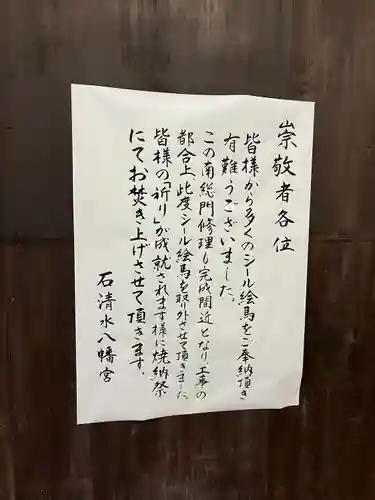 崇敬者各位
皆様から多くのシール絵馬をご奉納頂き
有難うございました。
この南総門修理も完成間近となり、工事の
都合上此度シール絵馬を取り外させて頂きました。
皆様の「祈り」が成就されます様に焼納祭
にてお焚き上げさせて頂きます。
石清水八幡宮